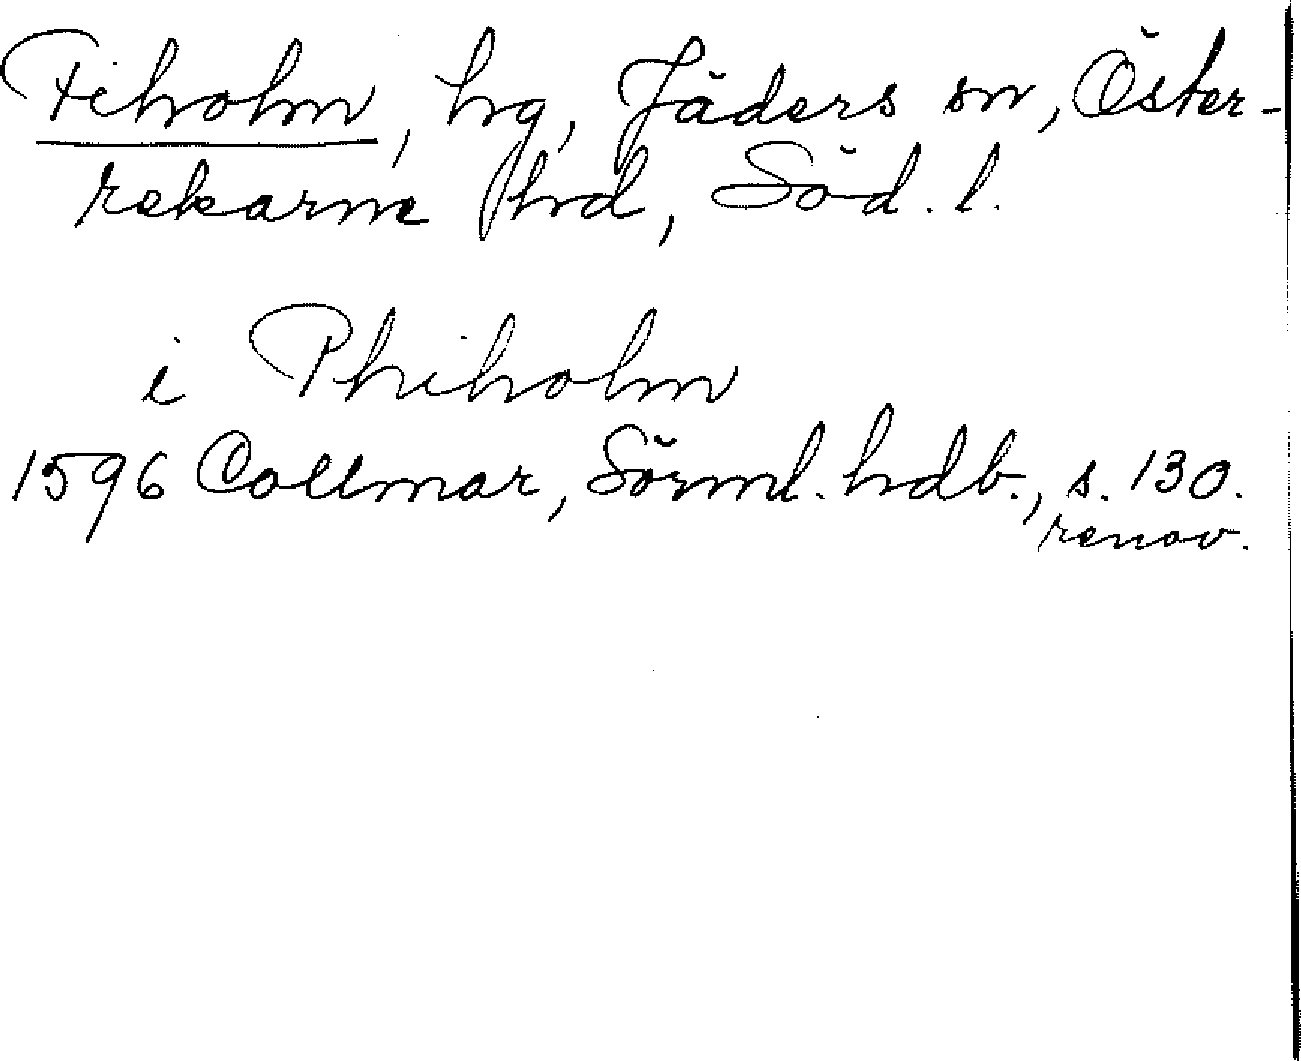 Fiholm, hg, Jäders sn, Öster-
rekarne hd, Söd. l.
i Phiholm
1596 Collmar, Sörml. hdb., s. 130.
renov.